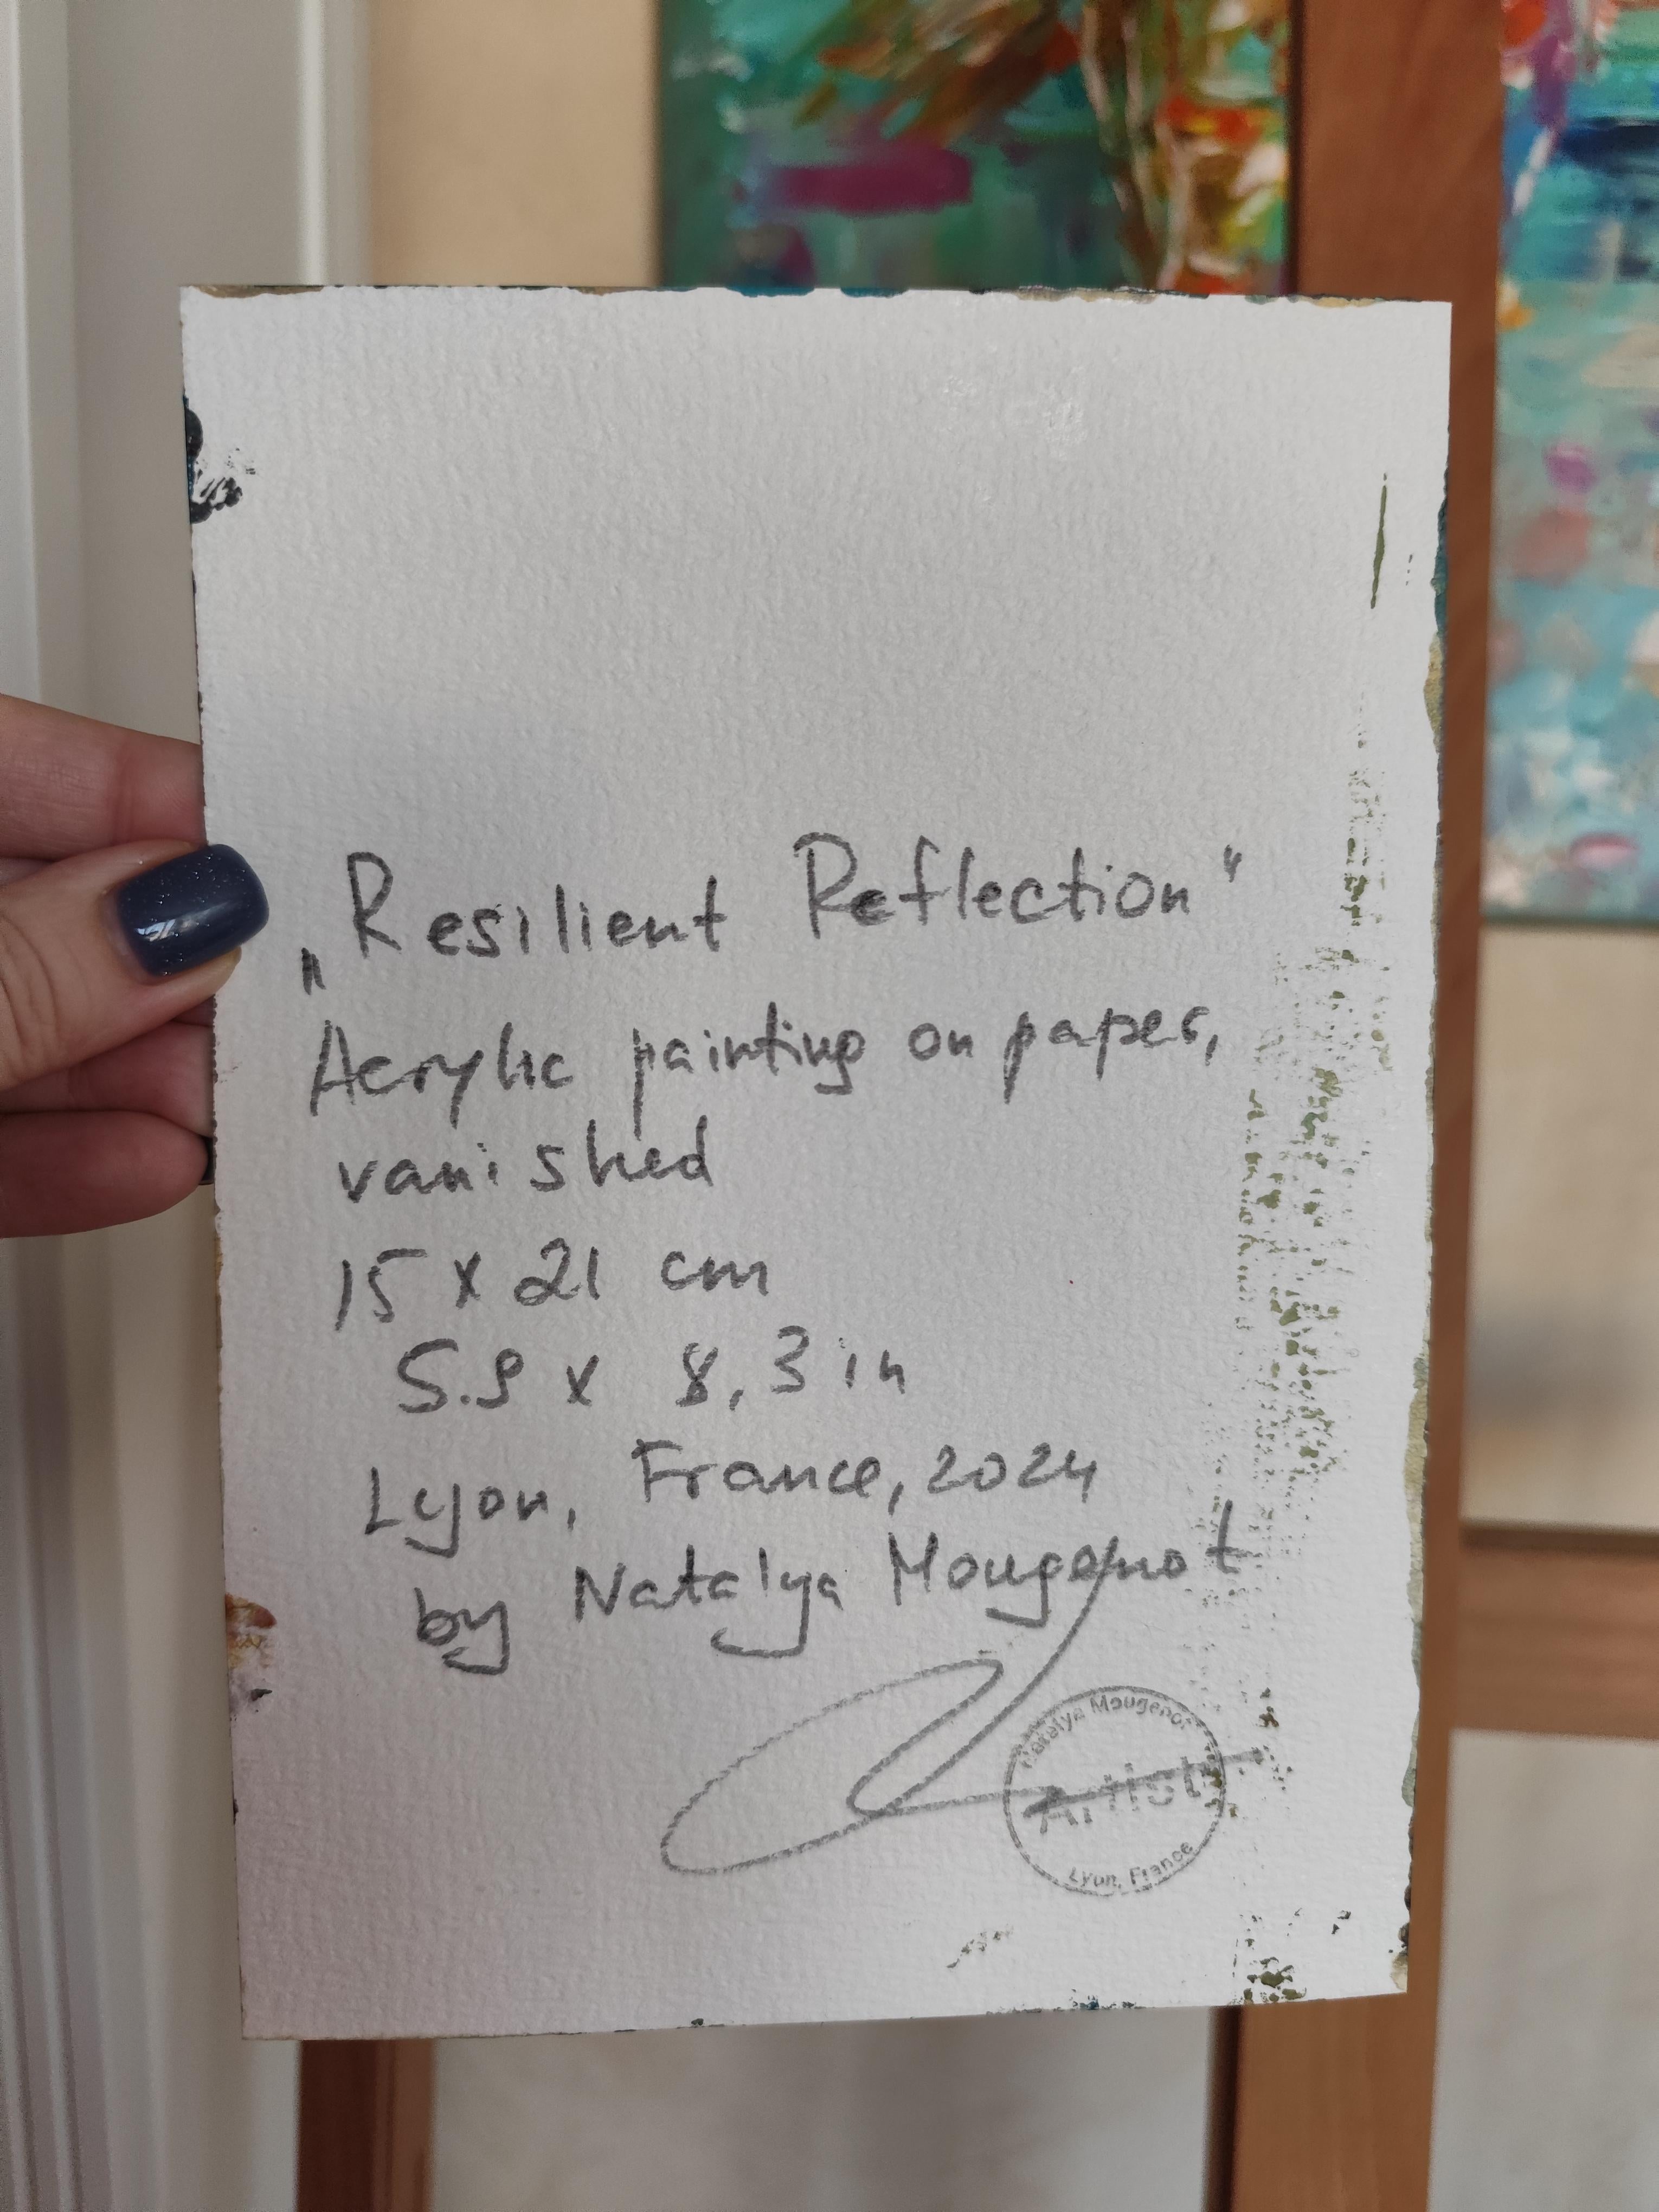 „Resilient Reflection"
Acrylic painting on paper,
vanished
15 x 21 cm
5.9 x 8,3 in
Lyon, France, 2024
by Natalya Mougenot
Natalya Mougenot
Artist
Lyon, France